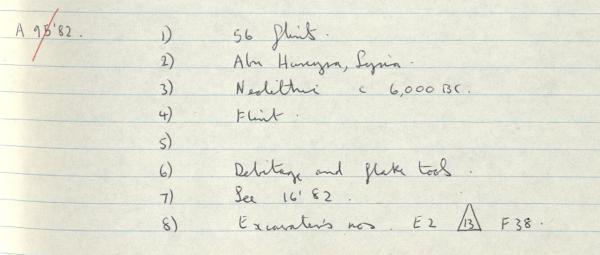 A 95'82. 1) 56 flint.
2) Abu Hureyra, Syria.
3) Neolithic c 6,000 BC.
4) Flint.
5)
6) Debitage and flake tools.
7) See 16'82.
8) Excavator's nos. E2 13 F38.